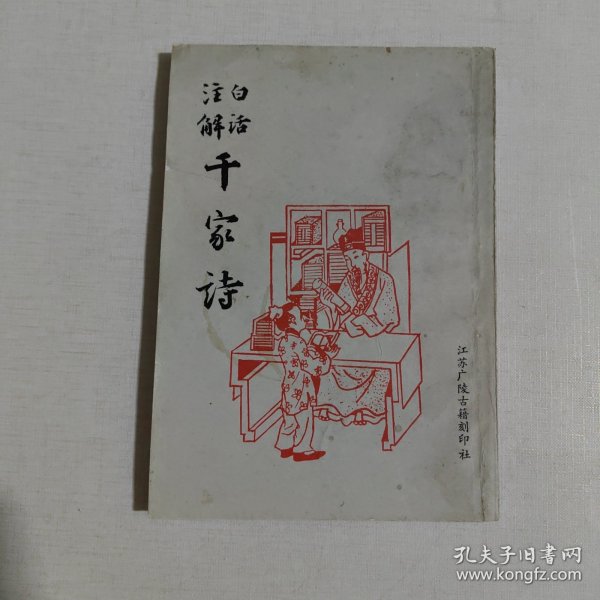 白话
注解
千家诗
江苏广陵古籍刻印社
孔夫子旧书网
www.kongfz.com